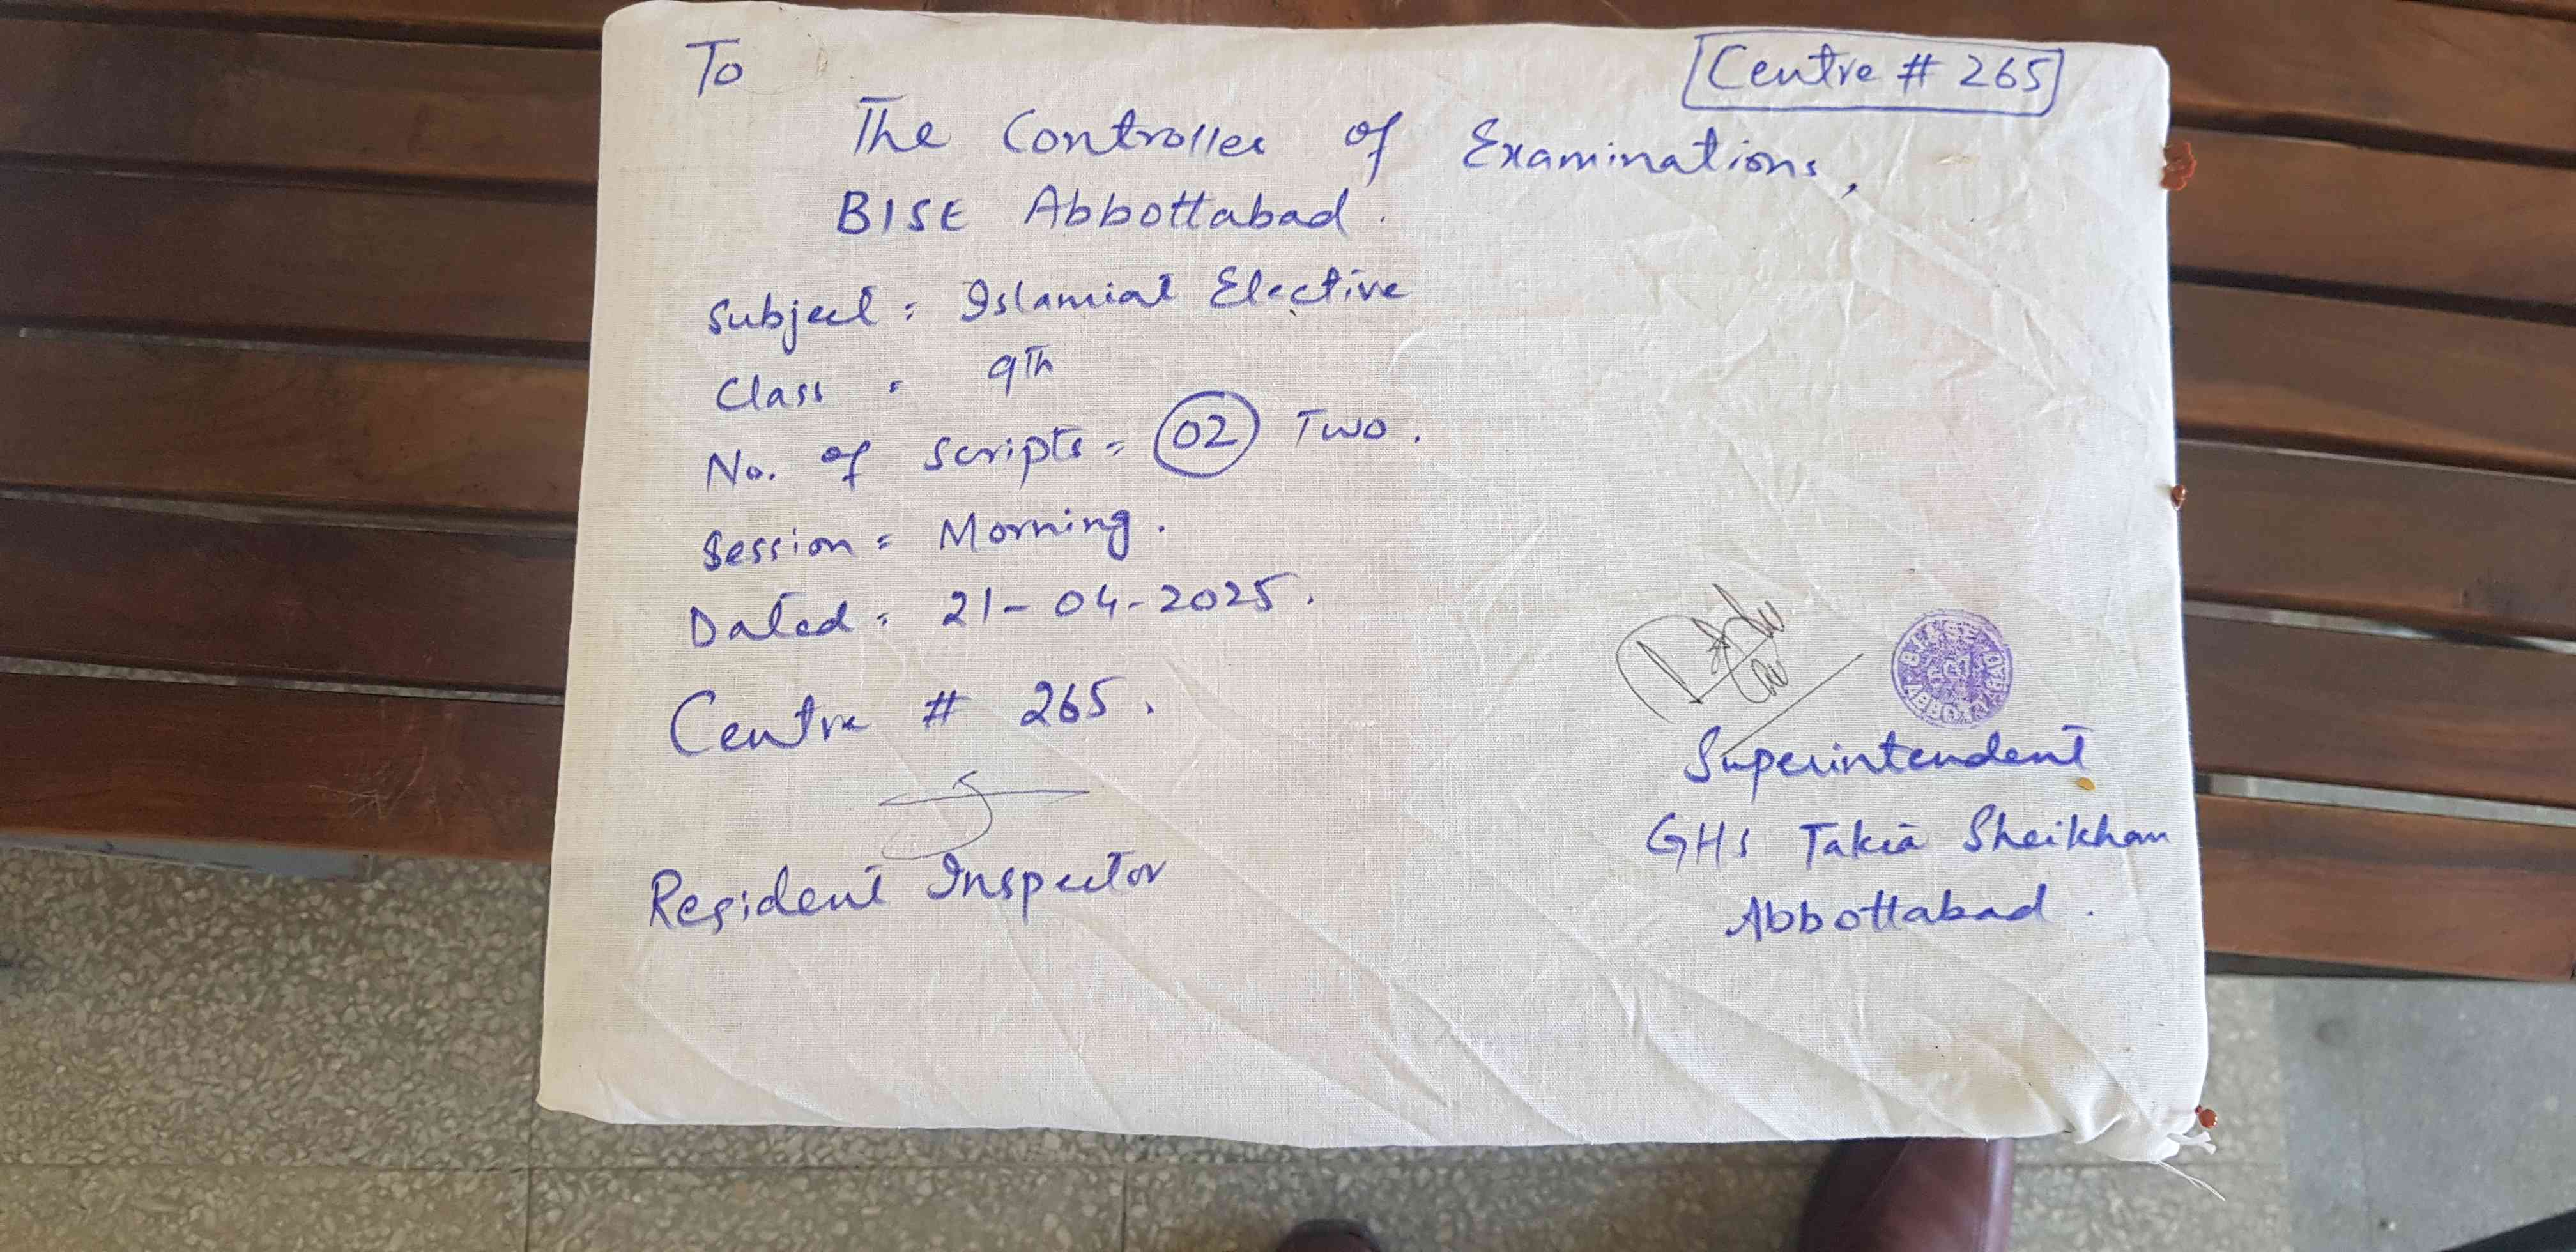 To
Centre # 265
The Controller of Examinations,
BISE Abbottabad.
Subject = Islamiat Elective
Class = 9th
No. of Scripts = 02 Two.
Session = Morning.
Dated = 21-04-2025.
Centre # 265.
Resident Inspector
Superintendent
GHS Takia Sheikhan
Abbottabad.